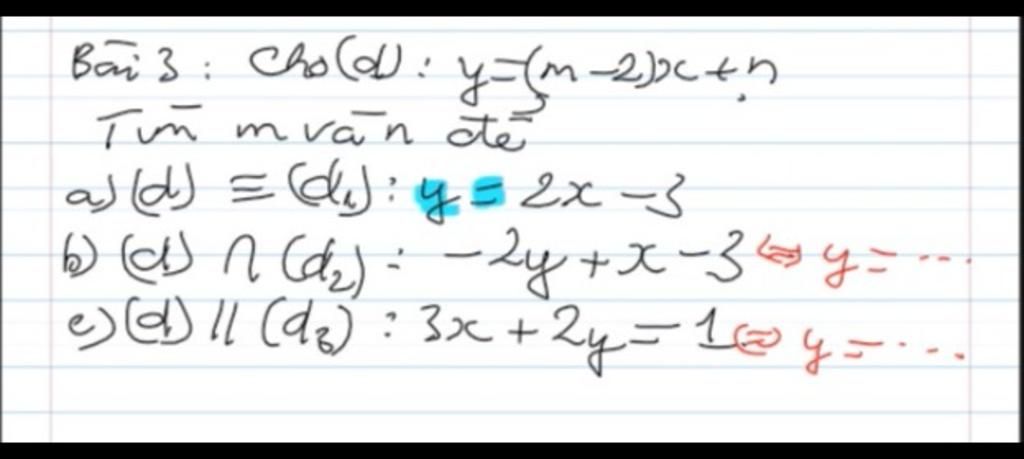 Bài 3 : Cho (d) : y = (m - 2)x + n
Tìm m và n để
a) (d) ≡ (d₁) : y = 2x - 3
b) (d) ∩ (d₂) : -2y + x - 3 ⇔ y = ...
c) (d) // (d₃) : 3x + 2y = 1 ⇔ y = ...